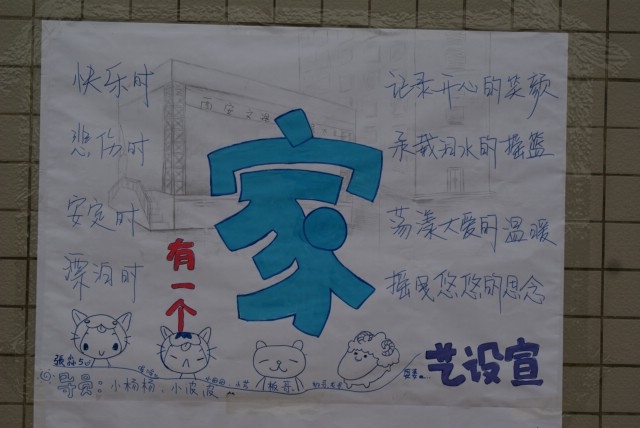 快乐时
记录开心的笑颜
悲伤时
承载泪水的摇篮
安定时
荡漾大爱的温暖
漂泊时
摇曳悠悠的思念
有一个
家
西安文
艺设宣
导员：小杨杨、小波波
板哥